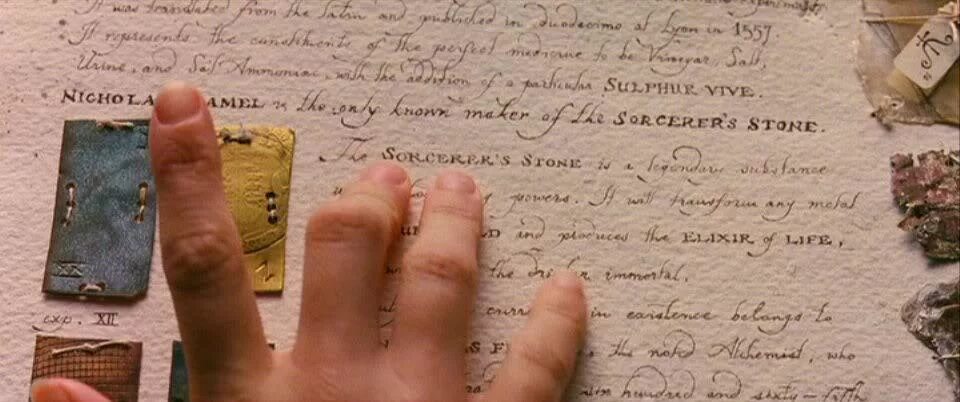 It was translated from the Latin and published in duodecimo at Lyon in 1557.
It represents the constituents of the perfect medicine to be Vinegar, Salt,
Urine, and Sal Ammoniac, with the addition of a particular SULPHUR VIVE.
NICHOLA AMEL is the only known maker of the SORCERER'S STONE.
The SORCERER'S STONE is a legendary substance
powers. It will transform any metal
and produces the ELIXIR of LIFE,
the drinker immortal.
in existence belongs to
the noted Alchemist, who
hundred and sixty-fifth
XX
exp. XII